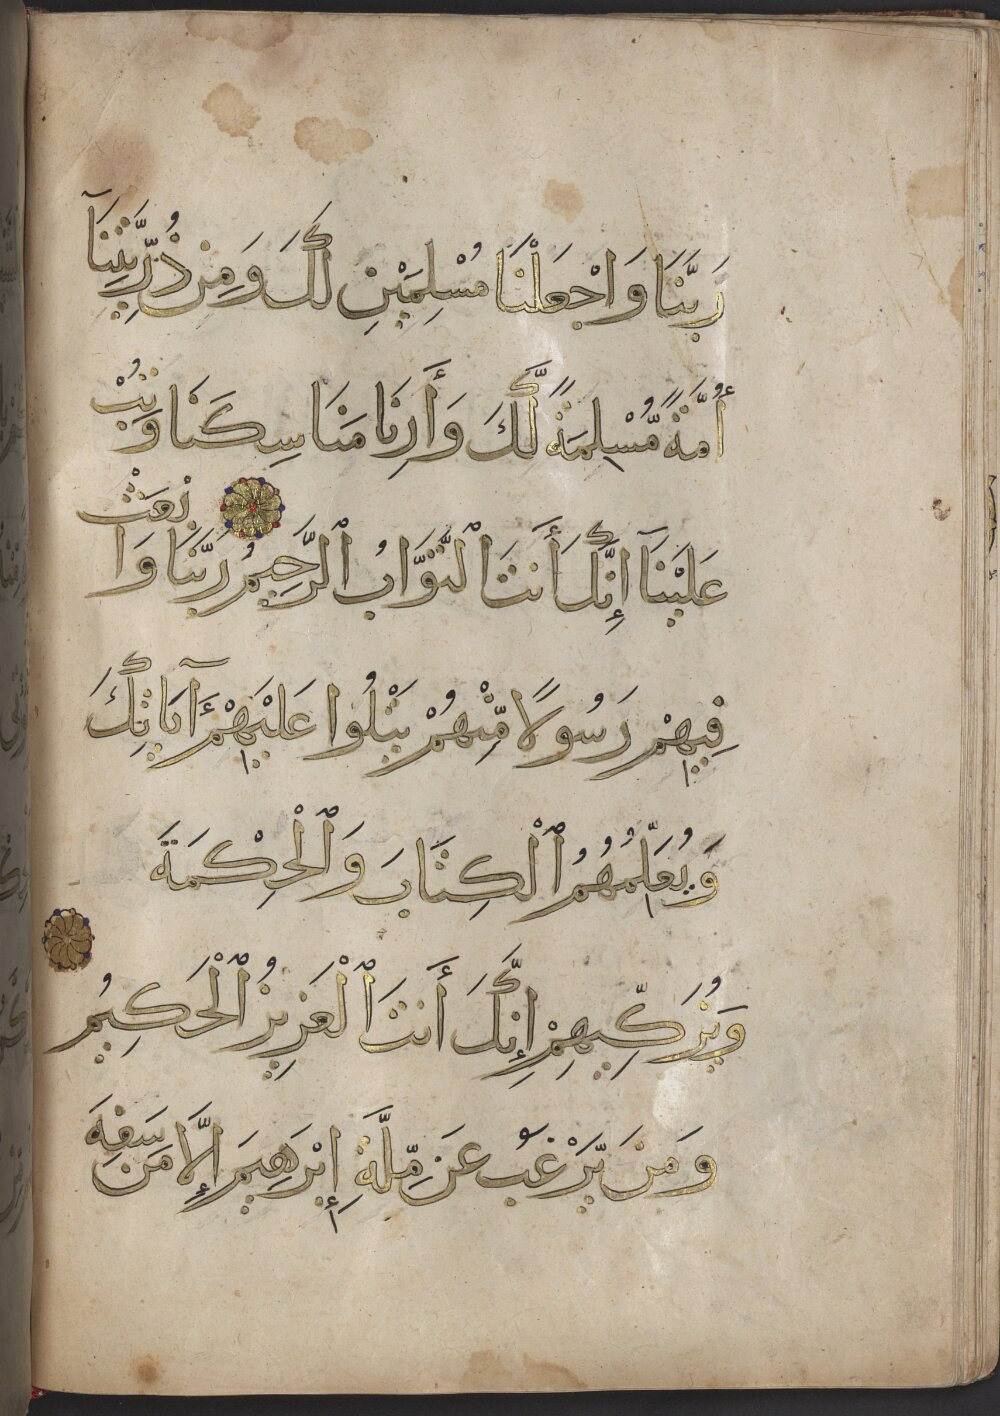 رَبَّنَا وَاجْعَلْنَا مُسْلِمَيْنِ لَكَ وَمِن ذُرِّيَّتِنَآ
أُمَّةً مُّسْلِمَةً لَّكَ وَأَرِنَا مَنَاسِكَنَا وَتُبْ
عَلَيْنَآ إِنَّكَ أَنتَ التَّوَّابُ الرَّحِيمُ رَبَّنَا وَابْعَثْ
فِيهِمْ رَسُولًا مِّنْهُمْ يَتْلُوا عَلَيْهِمْ آيَاتِكَ
وَيُعَلِّمُهُمُ الْكِتَابَ وَالْحِكْمَةَ
وَيُزَكِّيهِمْ إِنَّكَ أَنتَ الْعَزِيزُ الْحَكِيمُ
وَمَن يَّرْغَبُ عَن مِّلَّةِ إِبْرَهِيمَ إِلَّا مَن سَفِهَ